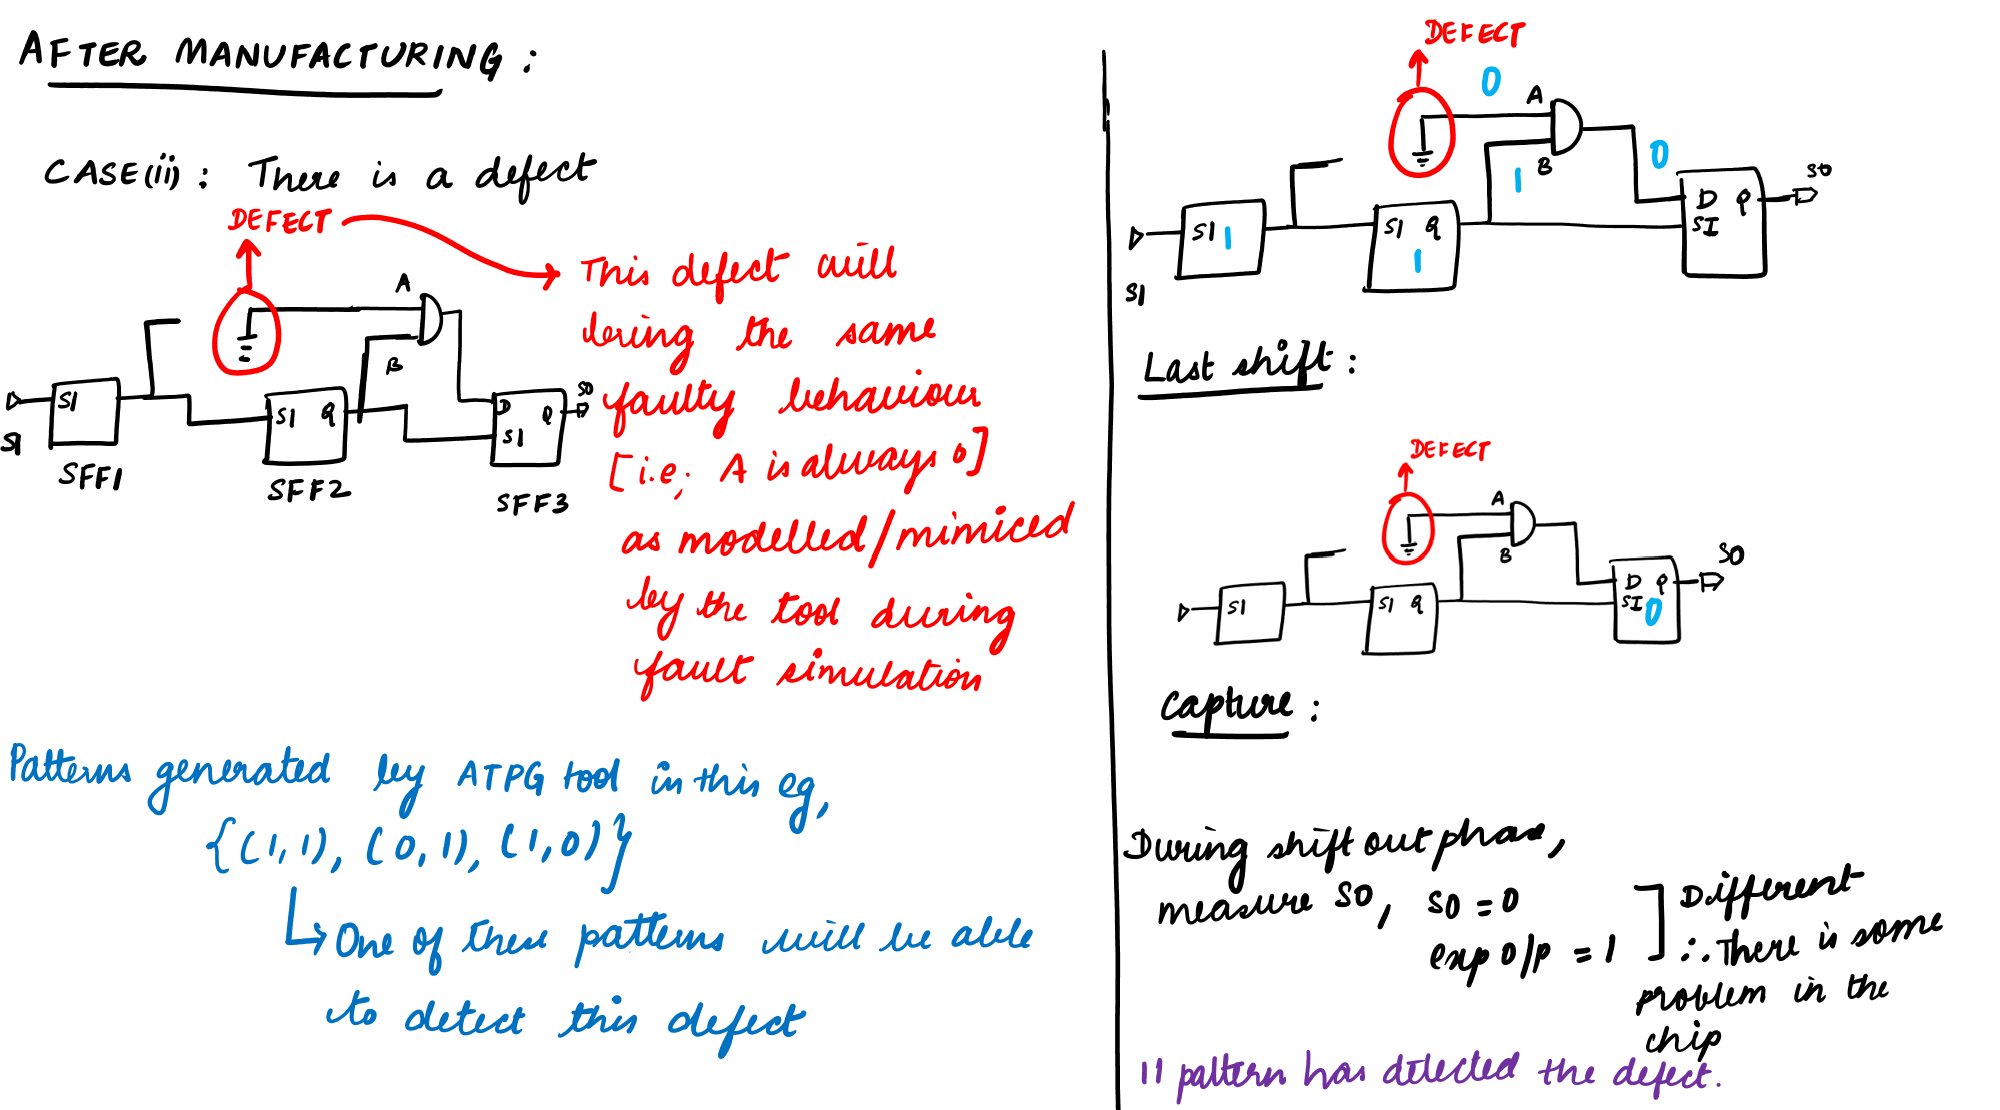 AFTER MANUFACTURING :
CASE(ii) : There is a defect
DEFECT
This defect will
bring the same
faulty behaviour
[i.e; A is always 0]
as modelled/mimiced
by the tool during
fault simulation
A
B
SI
SI
SI Q
D Q
SI
SO
SFF1
SFF2
SFF3
Patterns generated by ATPG tool in this eg,
{(1,1), (0,1), (1,0)}
One of these patterns will be able
to detect this defect
DEFECT
0
A
B
1
0
SI 1
SI Q
1
D Q
SI
SO
SI
Last shift :
DEFECT
A
B
SI
SI Q
D Q
SI 0
SO
Capture :
During shift out phase,
measure SO, SO = 0
exp o/p = 1
Different
∴ There is some
problem in the
chip
11 pattern has detected the defect.